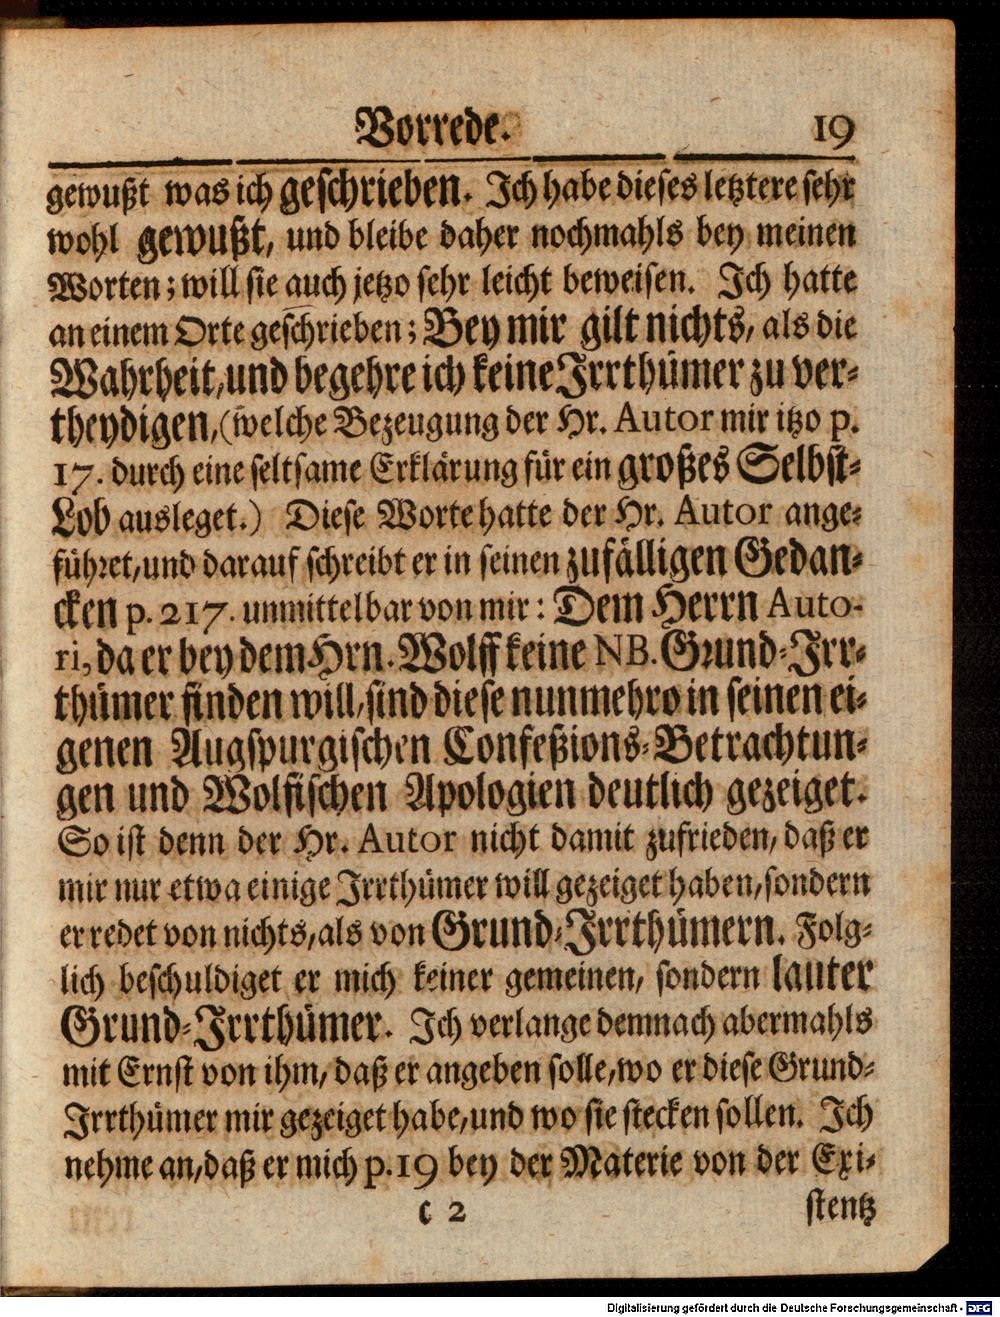 Vorrede. 19
gewußt was ich geschrieben. Ich habe dieses letztere sehr
wohl gewußt, und bleibe daher nochmahls bey meinen
Worten; will sie auch jetzo sehr leicht beweisen. Ich hatte
an einem Orte geschrieben; Bey mir gilt nichts, als die
Wahrheit, und begehre ich keine Irrthümer zu ver-
theydigen, (welche Bezeugung der Hr. Autor mir itzo p.
17. durch eine seltsame Erklärung für ein großes Selbst-
Lob ausleget.) Diese Worte hatte der Hr. Autor ange-
führet, und darauf schreibt er in seinen zufälligen Gedan-
cken p. 217. unmittelbar von mir: Dem Herrn Auto-
ri, da er bey dem Hrn. Wolff keine NB. Grund-Irr-
thümer finden will, sind diese nunmehro in seinen ei-
genen Augspurgischen Confeßions-Betrachtun-
gen und Wolfischen Apologien deutlich gezeiget.
So ist denn der Hr. Autor nicht damit zufrieden, daß er
mir nur etwa einige Irrthümer will gezeiget haben, sondern
er redet von nichts, als von Grund-Irrthümern. Folg-
lich beschuldiget er mich keiner gemeinen, sondern lauter
Grund-Irrthümer. Ich verlange demnach abermahls
mit Ernst von ihm, daß er angeben solle, wo er diese Grund-
Irrthümer mir gezeiget habe, und wo sie stecken sollen. Ich
nehme an, daß er mich p. 19 bey der Materie von der Exi-
c 2 stentz
Digitalisierung gefördert durch die Deutsche Forschungsgemeinschaft - DFG